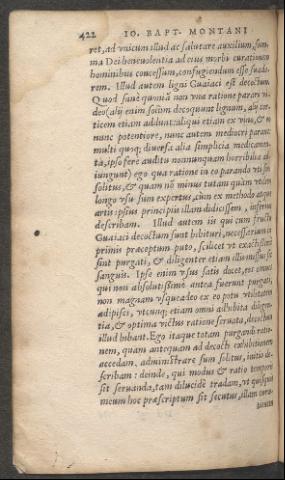 422 IO. BAPT. MONTANI
ret, ad vnicum illud ac salutare auxilium, sum-
ma Dei beneuolentia ad eius morbi curationem
hominibus concessum, confugiendum esse suade-
rem. Illud autem ligni Guaiaci est decoctum.
Quod sanè quoniã non vna ratione parari vi-
deo (alij enim solùm decoquunt lignum, alij cor-
ticem etiam addunt: aliqui etiam ex vino, & eo
nunc potentiore, nunc autem mediocri parant:
multi quoq; diuersa alia simplicia medicamen-
ta, ipso fere auditu nonnunquam horribilia ad-
iungunt) ego qua ratione in eo parando vti sim
solitus, & quam nõ minus tutam quàm vtilem
longo vsu sum expertus, cùm ex methodo atque
artis ipsius principiis illam didicissem, inferius
describam. Illud autem iis qui cum fructu
Guaiaci decoctum sunt bibituri, necessarium in
primis præceptum puto, scilicet vt exactissimè
sint purgati, & diligenter etiam illis missus sit
sanguis. Ipse enim vsus satis docet, eos omnes
qui non absolutissimè antea fuerunt purgati,
non magnam vsqueadeo ex eo potu vtilitatem
adipisci, vtcunq; etiam omni adhibita diligen-
tia, & optima victus ratione seruata, decoctum
illud bibant. Ego itaque totam purgandi ratio-
nem, quam antequam ad decocti exhibitionem
accedam, administrare sum solitus, initio de-
scribam: deinde, qui modus & ratio tempore
sit seruanda, tam dilucidè tradam, vt quisquis
meum hoc præscriptum sit secutus, illam cura-